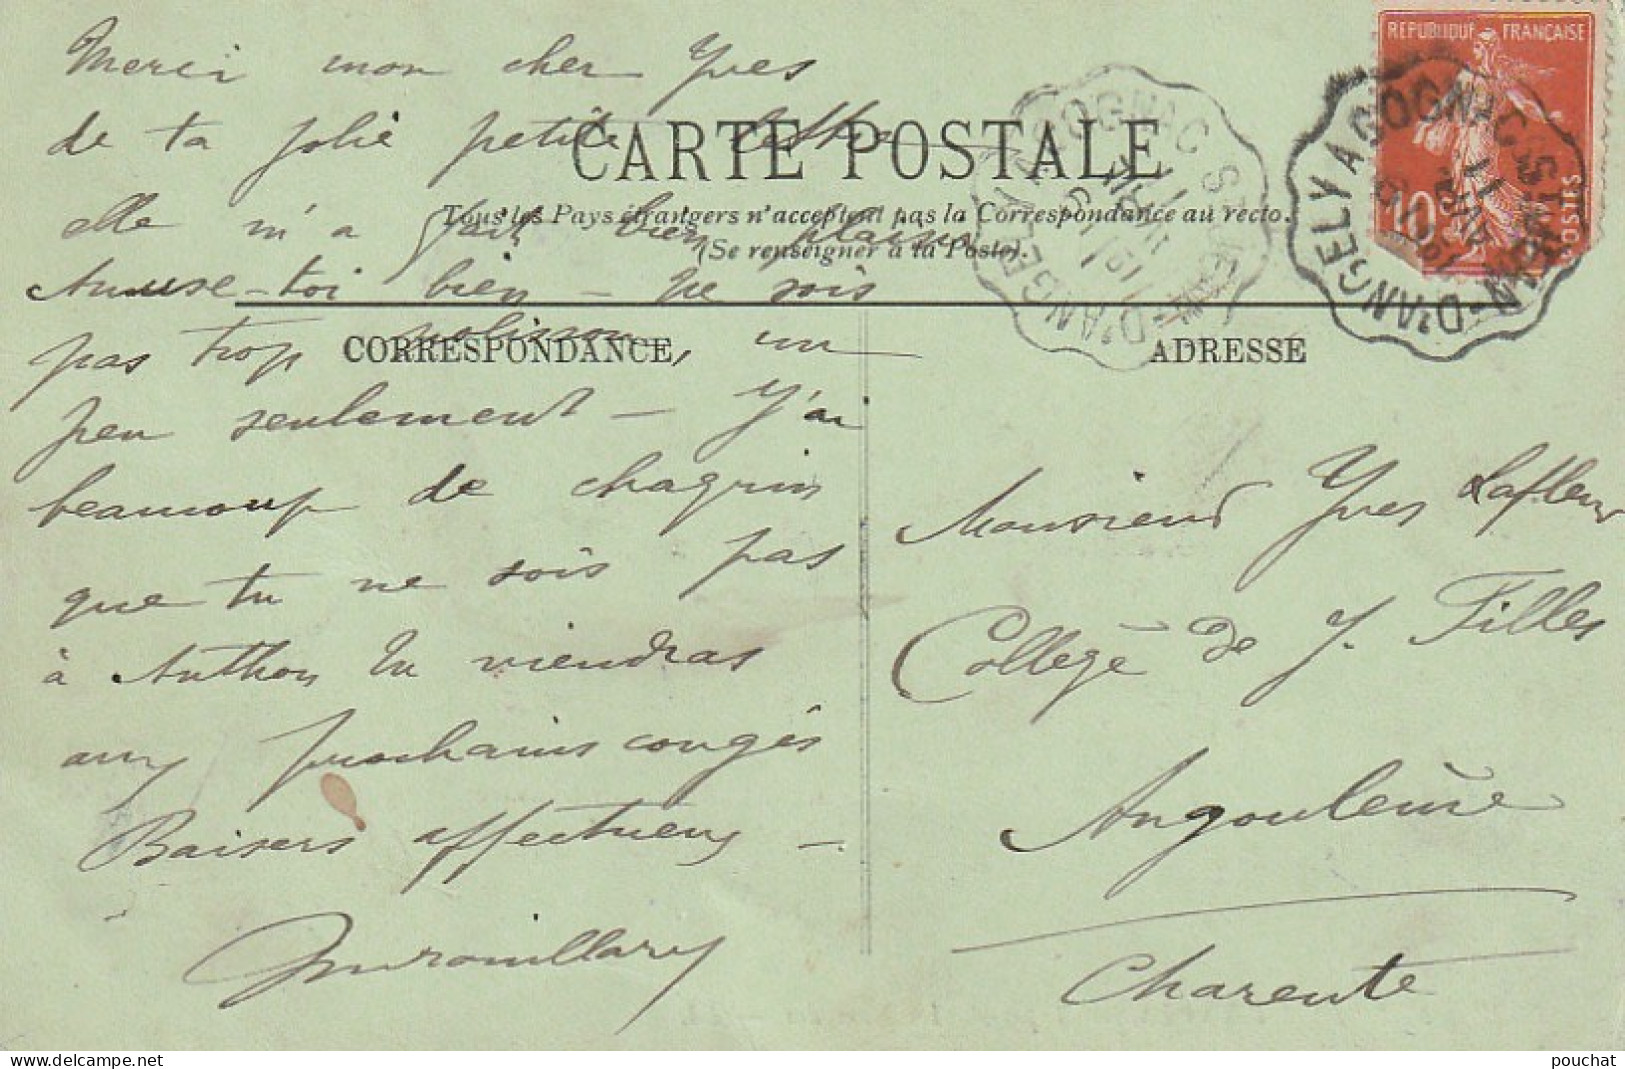 Merci mon cher Yves
de ta jolie petite lettre
elle m'a fait bien plaisir
Amuse-toi bien – ne sois
pas trop polisson, un
peu seulement – J'ai
beaucoup de chagrin
que tu ne sois pas
à Anthon tu viendras
aux prochains congés
Baisers affectueux –
CARTE POSTALE
Tous les Pays étrangers n'acceptent pas la Correspondance au recto.
(Se renseigner à la Poste).
CORRESPONDANCE
ADRESSE
REPUBLIQUE FRANÇAISE
10
POSTES
COGNAC A ST JEAN-D'ANGELY
COGNAC A ST JEAN-D'ANGELY
Monsieur Yves Lafleur
Collège de J. Filles
Angoulême
Charente
pouchat